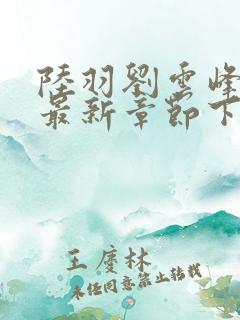 陸羽劉雲峰
最新章節下
王慶林
未经同意禁止转载